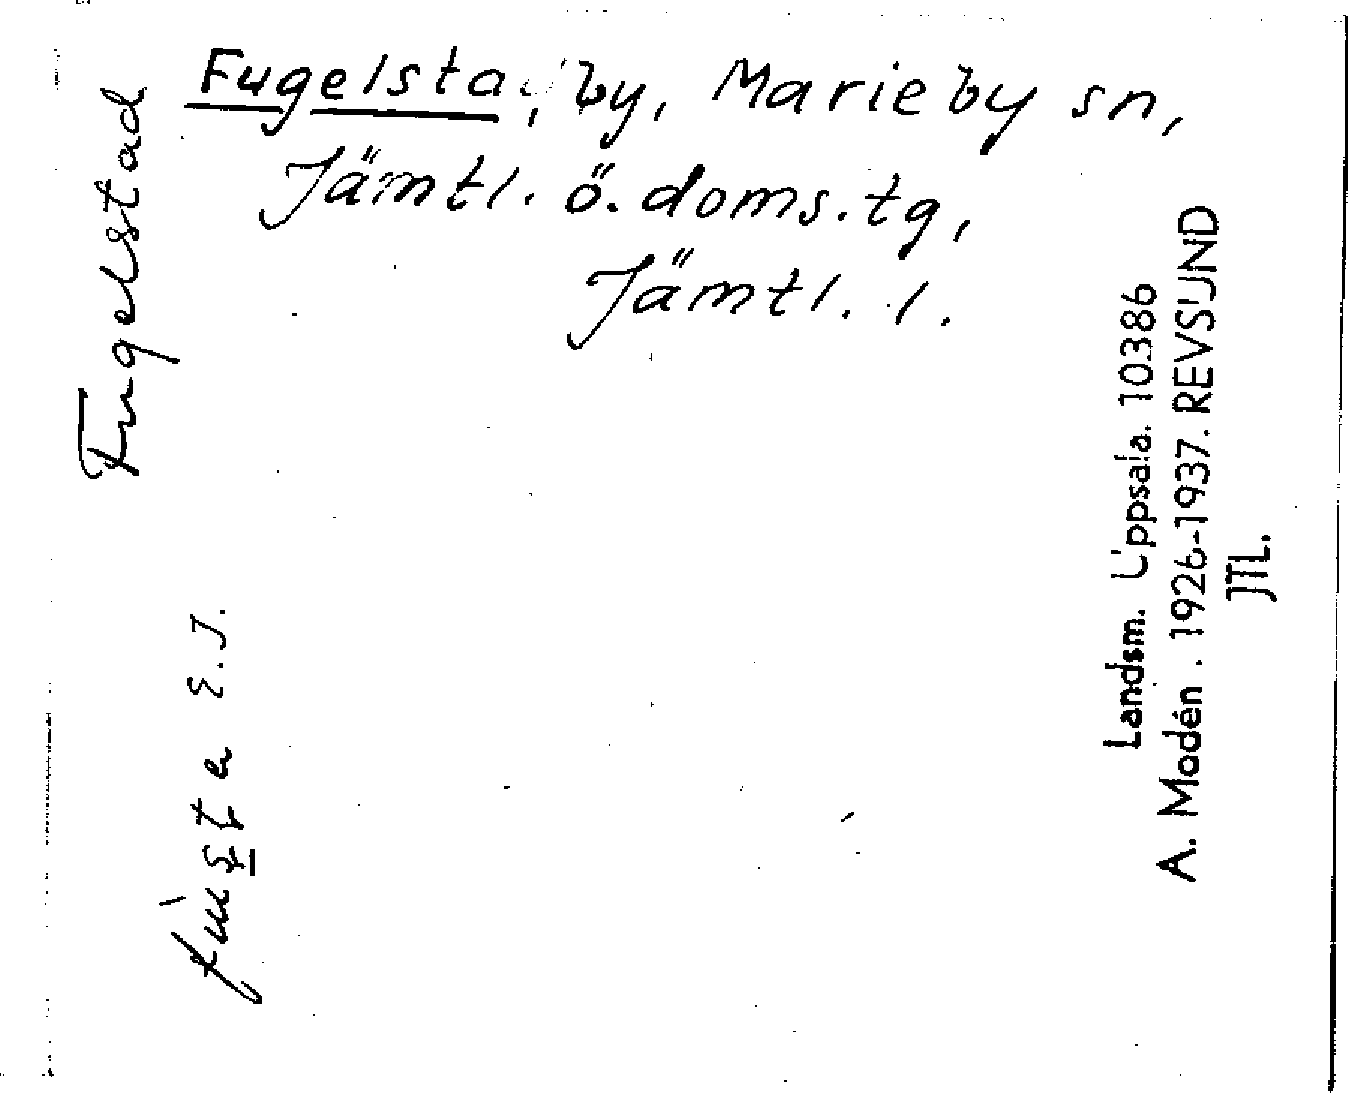 Fugelsta, by, Marieby sn,
Jämtl. ö. doms. tg,
Jämtl. l.
Fugelstad
E.J.
Landsm. Uppsala. 10386
A. Modén. 1926-1937. REVSUND
JTL.